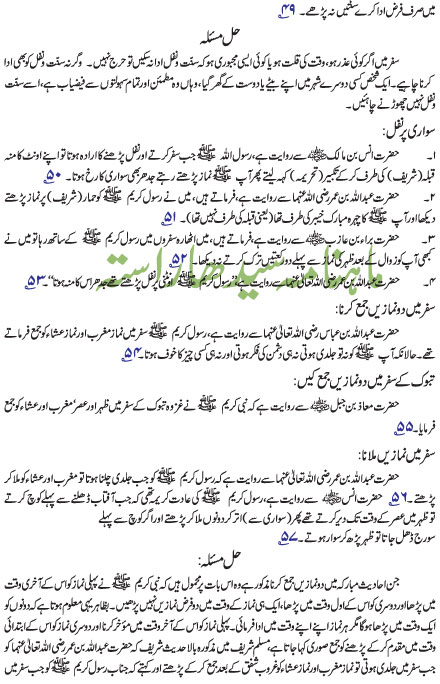 میں صرف فرض ادا کرے سنتیں نہ پڑھے۔ ۴۹
حل مسئلہ
سفر میں اگر کوئی عذر ہو، وقت کی قلت ہو یا کوئی ایسی مجبوری ہو کہ سنت و نفل ادا نہ کر سکیں تو حرج نہیں۔ وگرنہ سنت و نفل کو بھی ادا
کرنا چاہیے۔ ایک شخص کسی دوسرے شہر میں اپنے بیٹے یا دوست کے گھر گیا، وہاں وہ مطمئن اور تمام سہولتوں سے فیضیاب ہے، اسے سنت
و نفل نہیں چھوڑنے چاہئیں۔
سواری پر نفل:
۱۔ حضرت انس بن مالک ؓ سے روایت ہے، رسول اللہ ﷺ جب سفر کرتے اور نفل پڑھنے کا ارادہ ہوتا تو اپنے اونٹ کا منہ
قبلہ (شریف) کی طرف کر کے تکبیر (تحریمہ) کہہ لیتے پھر آپ ﷺ نماز پڑھتے رہتے جدھر بھی سواری کا رخ ہوتا۔ ۵۰
۲۔ حضرت عبداللہ بن عمر رضی اللہ عنہما سے روایت ہے، فرماتے ہیں، میں نے رسول کریم ﷺ کو حمار (شریف) پر نماز پڑھتے
دیکھا اور آپ ﷺ کا چہرہ مبارک خیبر کی طرف تھا (یعنی قبلہ کی طرف نہیں تھا)۔ ۵۱
۳۔ حضرت براء بن عازب ؓ سے روایت ہے، فرماتے ہیں، میں اٹھارہ سفروں میں رسول کریم ﷺ کے ساتھ رہا تو میں نے
کبھی آپ کو زوال کے بعد ظہر کی نماز سے پہلے دو رکعتیں ترک کرتے نہ دیکھا۔ ۵۲
۴۔ حضرت عبداللہ بن عمر رضی اللہ تعالیٰ عنہما سے روایت ہے ’’رسول کریم ﷺ اونٹنی پر نفل پڑھتے تھے جدھر اس کا منہ ہوتا‘‘۔ ۵۳
ماہنامہ سیدھا راستہ
سفر میں دو نمازیں جمع کرنا:
حضرت عبداللہ بن عباس رضی اللہ تعالیٰ عنہما سے روایت ہے، رسول کریم ﷺ سفر میں نماز مغرب اور نماز عشاء کو جمع فرماتے
تھے۔ حالانکہ آپ ﷺ کو نہ تو جلدی ہوتی نہ ہی دشمن کی فکر ہوتی اور نہ ہی کسی چیز کا خوف ہوتا۔ ۵۴
تبوک کے سفر میں دو نمازیں جمع کیں:
حضرت معاذ بن جبل ؓ سے روایت ہے کہ نبی کریم ﷺ نے غزوہ تبوک کے سفر میں ظہر اور عصر‘ مغرب اور عشاء کو جمع
فرمایا۔ ۵۵
سفر میں نمازیں ملانا:
حضرت عبداللہ بن عمر رضی اللہ تعالیٰ عنہما سے روایت ہے کہ رسول کریم ﷺ کو جب جلدی چلنا ہوتا تو مغرب اور عشاء کو ملا کر
پڑھتے۔ ۵۶ حضرت انس ؓ سے روایت ہے، رسول کریم ﷺ کی عادت کریمہ تھی کہ جب آفتاب ڈھلنے سے پہلے کوچ کرتے
تو ظہر میں عصر کے وقت تک دیر کرتے تھے پھر (سواری سے) اتر کر دونوں ملا کر پڑھتے اور اگر کوچ سے پہلے
سورج ڈھل جاتا تو ظہر پڑھ کر سوار ہوتے۔ ۵۷
حل مسئلہ:
جن احادیث مبارکہ میں دو نمازیں جمع کرنا مذکور ہے وہ اس بات پر محمول ہیں کہ نبی کریم ﷺ نے پہلی نماز کو اس کے آخری وقت
میں پڑھا اور دوسری کو اس کے اول وقت میں پڑھا، ایک ہی نماز کے وقت میں دو فرض نمازیں نہیں پڑھیں۔ بظاہر یہی معلوم ہوتا ہے کہ دونوں کو
ایک وقت میں پڑھا ہوگا مگر ہر نماز اپنے اپنے وقت میں ادا فرمائی۔ پہلی نماز کو اس کے آخر وقت میں مؤخر کرنا اور دوسری نماز کو اس کے ابتدائی
وقت میں مقدم کر کے پڑھنے کو جمع صوری کہا جاتا ہے، مسلم شریف میں مذکورہ بالا حدیث شریف کہ حضرت عبداللہ بن عمر رضی اللہ تعالیٰ عنہما کو
جب سفر میں جلدی ہوتی تو نماز مغرب اور نماز عشاء کو غروب شفق کے بعد جمع کر کے پڑھتے اور کہتے کہ جناب رسول کریم ﷺ کو جب سفر میں